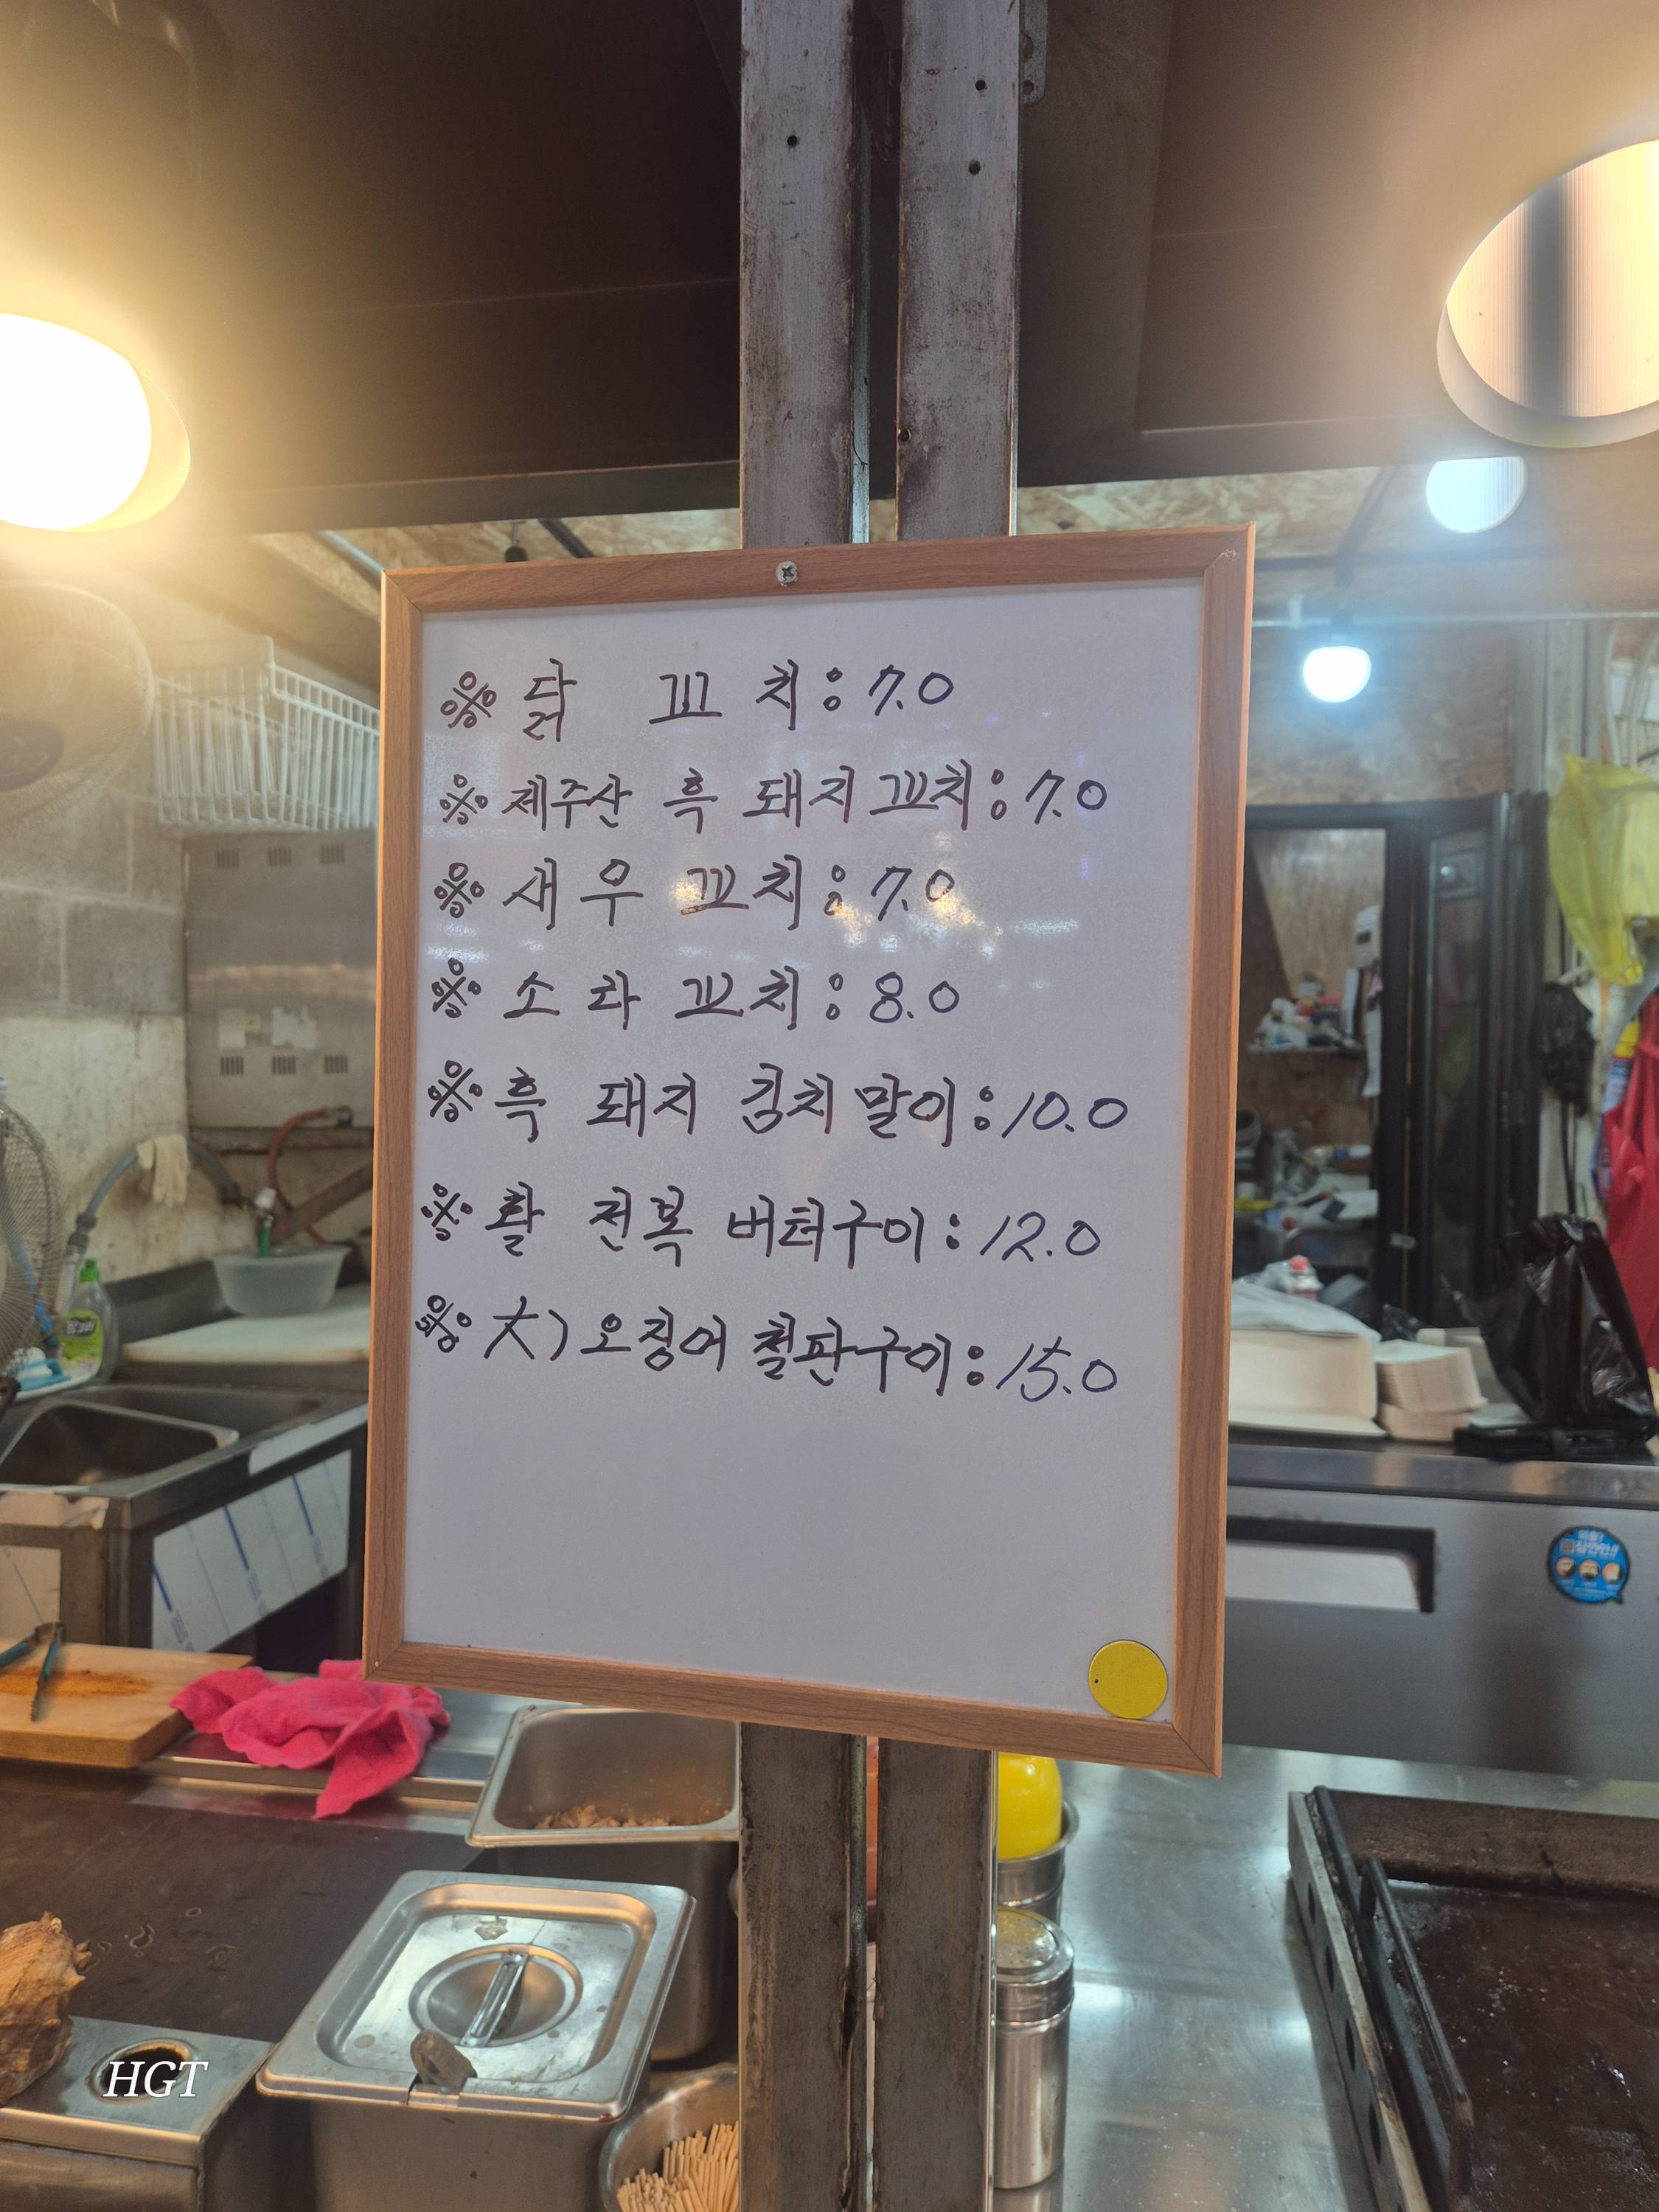 ※ 닭 꼬치 : 7.0
※ 제주산 흑 돼지 꼬치 : 7.0
※ 새우 꼬치 : 7.0
※ 소라 꼬치 : 8.0
※ 흑 돼지 김치 말이 : 10.0
※ 활 전복 버터구이 : 12.0
※ 大) 오징어 철판구이 : 15.0
HGT